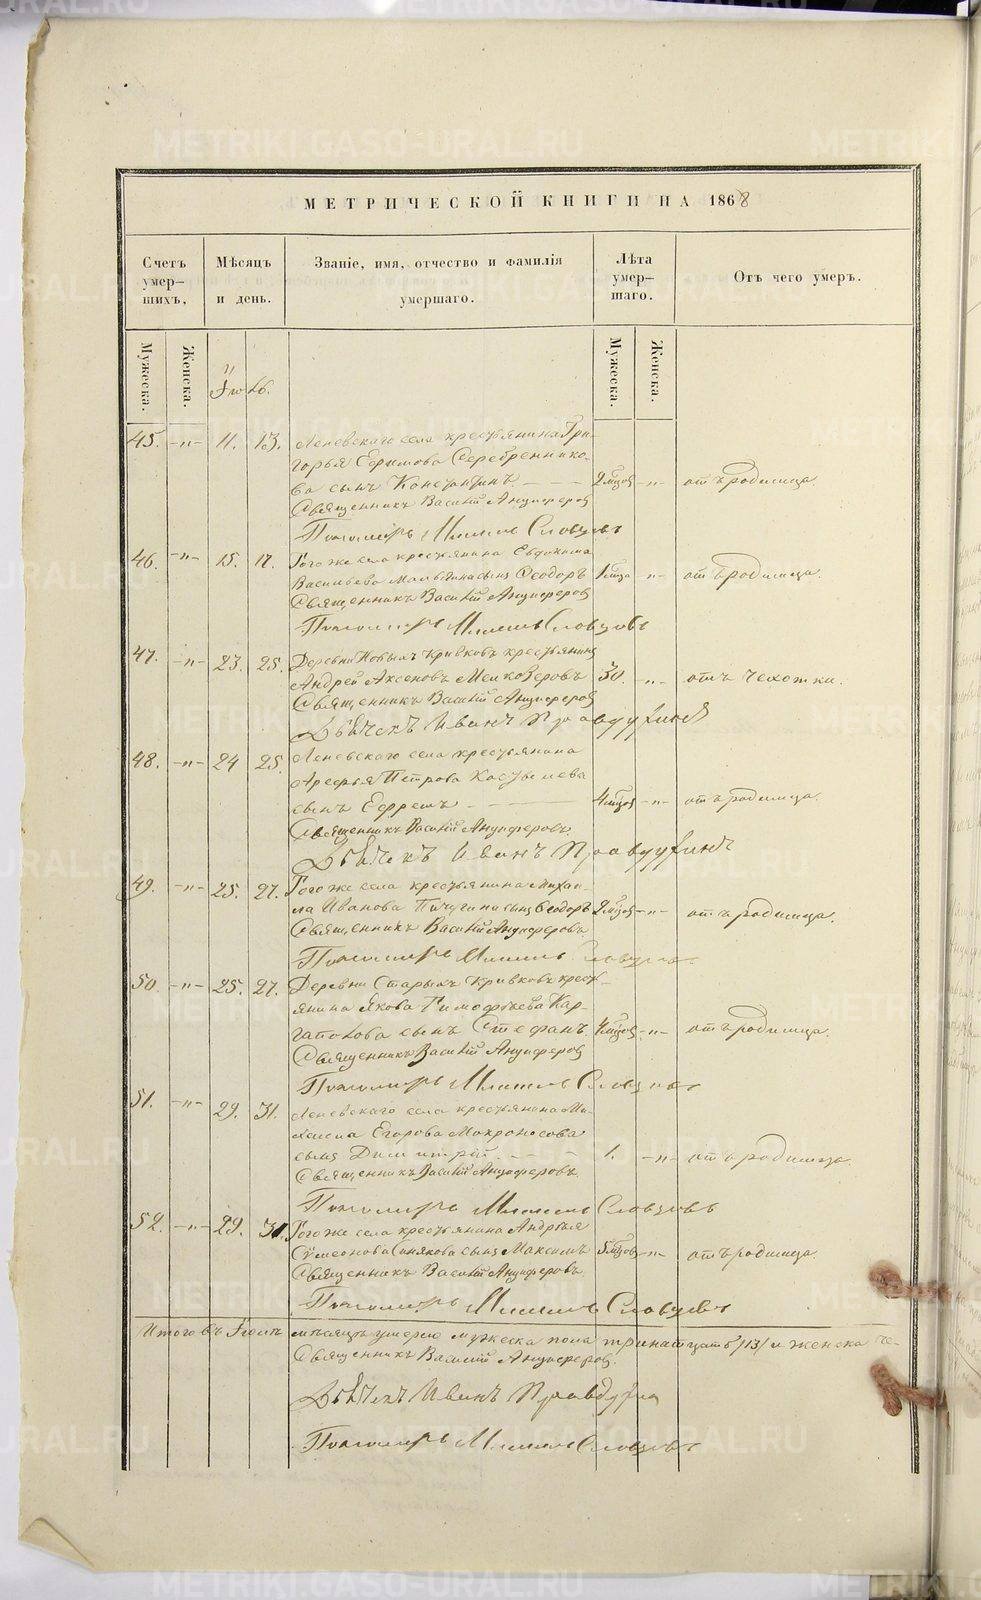 МЕТРИЧЕСКОЙ КНИГИ НА 1868
Счетъ умер-шихъ,
Мѣсяцъ и день.
Званіе, имя, отчество и фамилія умершаго.
Лѣта умер-шаго.
Отъ чего умеръ.
Мужеска.
Женска.
Мужеска.
Женска.
45. -"- 11. 13. Леневскаго села крестьянина Гри-
горья Ефимова Серебреннико-
ва сынъ Константинъ 2 мѣсяц -"- отъ родимца.
Священникъ Василій Анциферовъ
Пономарь Словцовъ
46. -"- 15. 17. Того же села крестьянина Евдокима
Васильева сынъ Ѳеодоръ -"- отъ родимца.
Священникъ Василій Анциферовъ
Пономарь Словцовъ
47. -"- 23. 25. Деревни Новыхъ Кривковъ крестьянинъ
Андрей Аксеновъ Мелкозеровъ 30. -"- отъ чехотки.
Священникъ Василій Анциферовъ
Дьячекъ Иванъ Правдухинъ
48. -"- 24 25. Леневскаго села крестьянина
Арефья Петрова
сынъ Ефремъ 4 мѣсяц -"- отъ родимца.
Священникъ Василій Анциферовъ.
Дьячекъ Иванъ Правдухинъ
49. -"- 25. 27. Того же села крестьянина Михаи-
ла Иванова Пичугина сынъ Ѳеодоръ 2 мѣсяц -"- отъ родимца.
Священникъ Василій Анциферовъ
Пономарь Словцовъ
50. -"- 25. 27. Деревни Старыхъ Кривковъ кресть-
янина Якова Тимофѣева Кар-
гаполова сынъ Стефанъ -"- отъ родимца.
Священникъ Василій Анциферовъ
Пономарь Словцовъ
51. -"- 29. 31. Леневскаго села крестьянина Ми-
хаила Егорова Мокроносова
сынъ Димитрій. 1. -"- отъ родимца.
Священникъ Василій Анциферовъ.
Пономарь Словцовъ
52. -"- 29. 31. Того же села крестьянина Андрея
Сумеонова Синякова сынъ Максимъ 5 мѣсяц -"- отъ родимца.
Священникъ Василій Анциферовъ.
Пономарь Словцовъ
Итого въ мѣсяцѣ умерло мужеска пола тринатцать /13/ и женска че-
Священникъ Василій Анциферовъ.
Дьячекъ Иванъ Правдухин
Пономарь Словцовъ
METRIKI.GASO-URAL.RU